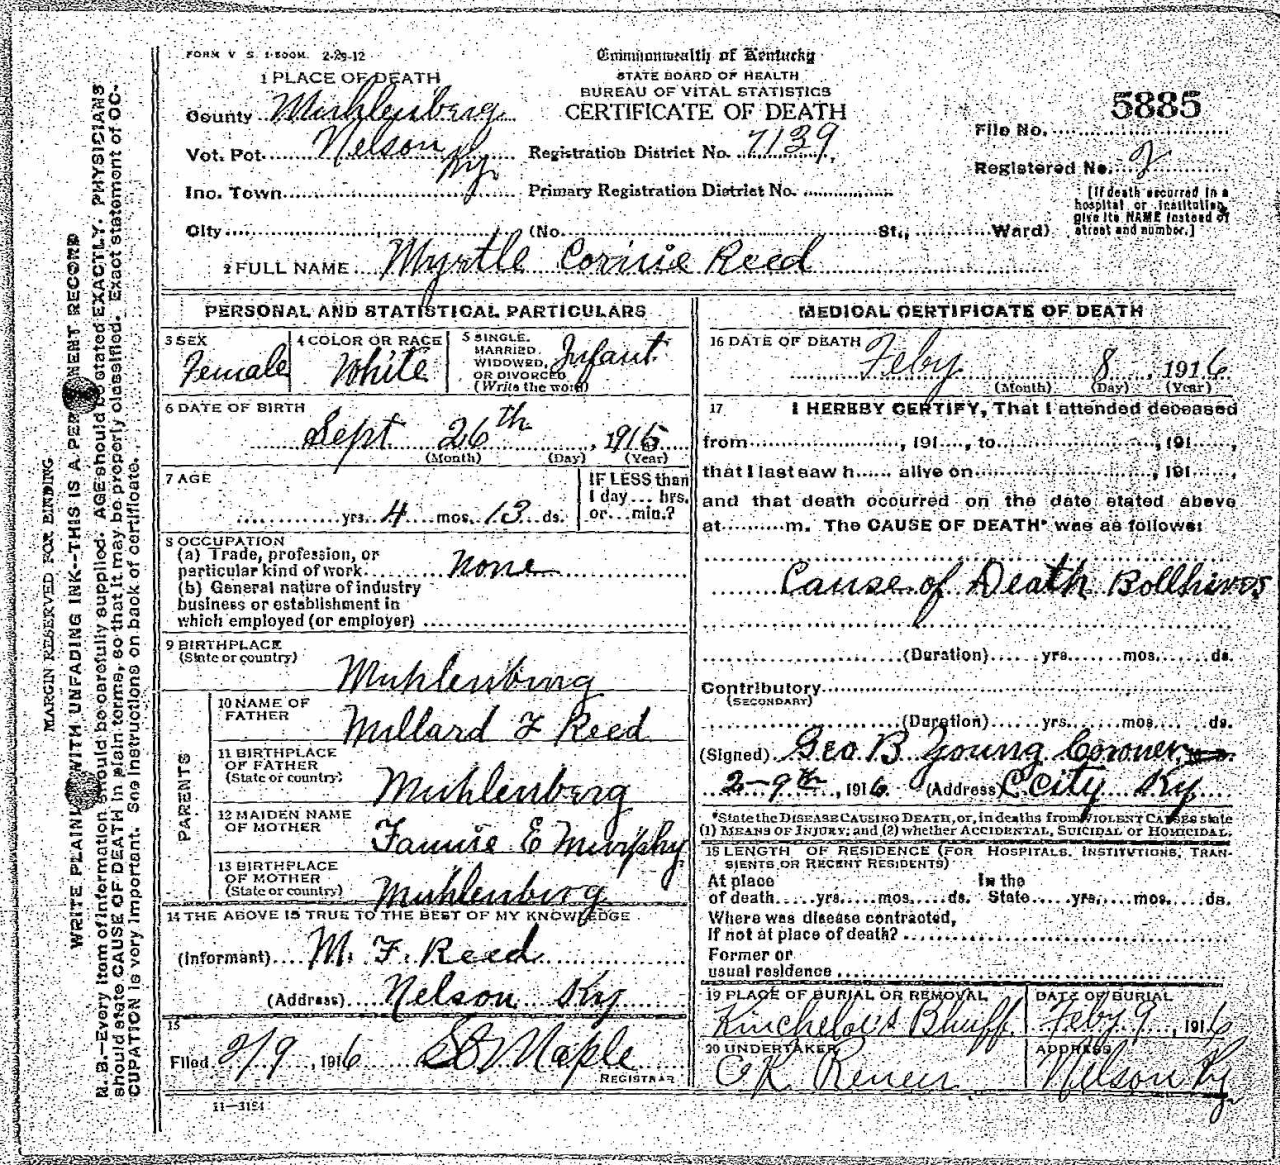 FORM V S. 1-500M. 2-29-12
Commonwealth of Kentucky
STATE BOARD OF HEALTH
BUREAU OF VITAL STATISTICS
CERTIFICATE OF DEATH
5885
File No.
Registered No. 2
[If death occurred in a
hospital or institution,
give its NAME instead of
street and number.]
1 PLACE OF DEATH
County Muhlenberg
Vot. Pct. Nelson Ky. Registration District No. 7139
Inc. Town Primary Registration District No.
City (No. St., Ward)
2 FULL NAME Myrtle Corinie Reed
PERSONAL AND STATISTICAL PARTICULARS
3 SEX
Female
4 COLOR OR RACE
White
5 SINGLE,
MARRIED,
WIDOWED,
OR DIVORCED
(Write the word)
Infant
6 DATE OF BIRTH
Sept 26th, 1915
(Month) (Day) (Year)
7 AGE
yrs. 4 mos. 13 ds.
IF LESS than
1 day ... hrs.
or ... min.?
8 OCCUPATION
(a) Trade, profession, or
particular kind of work none
(b) General nature of industry
business or establishment in
which employed (or employer)
9 BIRTHPLACE
(State or country)
Muhlenburg
PARENTS
10 NAME OF
FATHER
Millard F Reed
11 BIRTHPLACE
OF FATHER
(State or country)
Muhlenburg
12 MAIDEN NAME
OF MOTHER
Fannie E Murphy
13 BIRTHPLACE
OF MOTHER
(State or country)
Muhlenburg
14 THE ABOVE IS TRUE TO THE BEST OF MY KNOWLEDGE
(Informant) M. F. Reed
(Address) Nelson Ky
15
Filed 2/9, 1916 Maple
REGISTRAR
11—3151
MEDICAL CERTIFICATE OF DEATH
16 DATE OF DEATH
Feby 8, 1916
(Month) (Day) (Year)
17 I HEREBY CERTIFY, That I attended deceased
from , 191 , to , 191 ,
that I last saw h alive on , 191 ,
and that death occurred on the date stated above
at m. The CAUSE OF DEATH* was as follows:
Cause of Death Bollhives
(Duration) yrs. mos. ds.
Contributory
(SECONDARY)
(Duration) yrs. mos. ds.
(Signed) Geo B Young Coroner,
2-9th, 1916 (Address) C City Ky
*State the DISEASE CAUSING DEATH, or, in deaths from VIOLENT CAUSES state
(1) MEANS OF INJURY; and (2) whether ACCIDENTAL, SUICIDAL or HOMICIDAL.
18 LENGTH OF RESIDENCE (FOR HOSPITALS, INSTITUTIONS, TRAN-
SIENTS OR RECENT RESIDENTS)
At place In the
of death yrs. mos. ds. State yrs. mos. ds.
Where was disease contracted,
If not at place of death?
Former or
usual residence
19 PLACE OF BURIAL OR REMOVAL
Kincheloes Bluff
DATE OF BURIAL
Feby 9, 1916
20 UNDERTAKER
ADDRESS
Nelson Ky
MARGIN RESERVED FOR BINDING
WRITE PLAINLY WITH UNFADING INK--THIS IS A PERMANENT RECORD
N. B.—Every item of information should be carefully supplied. AGE should be stated EXACTLY. PHYSICIANS
should state CAUSE OF DEATH in plain terms, so that it may be properly classified. Exact statement of OC-
CUPATION is very important. See instructions on back of certificate.